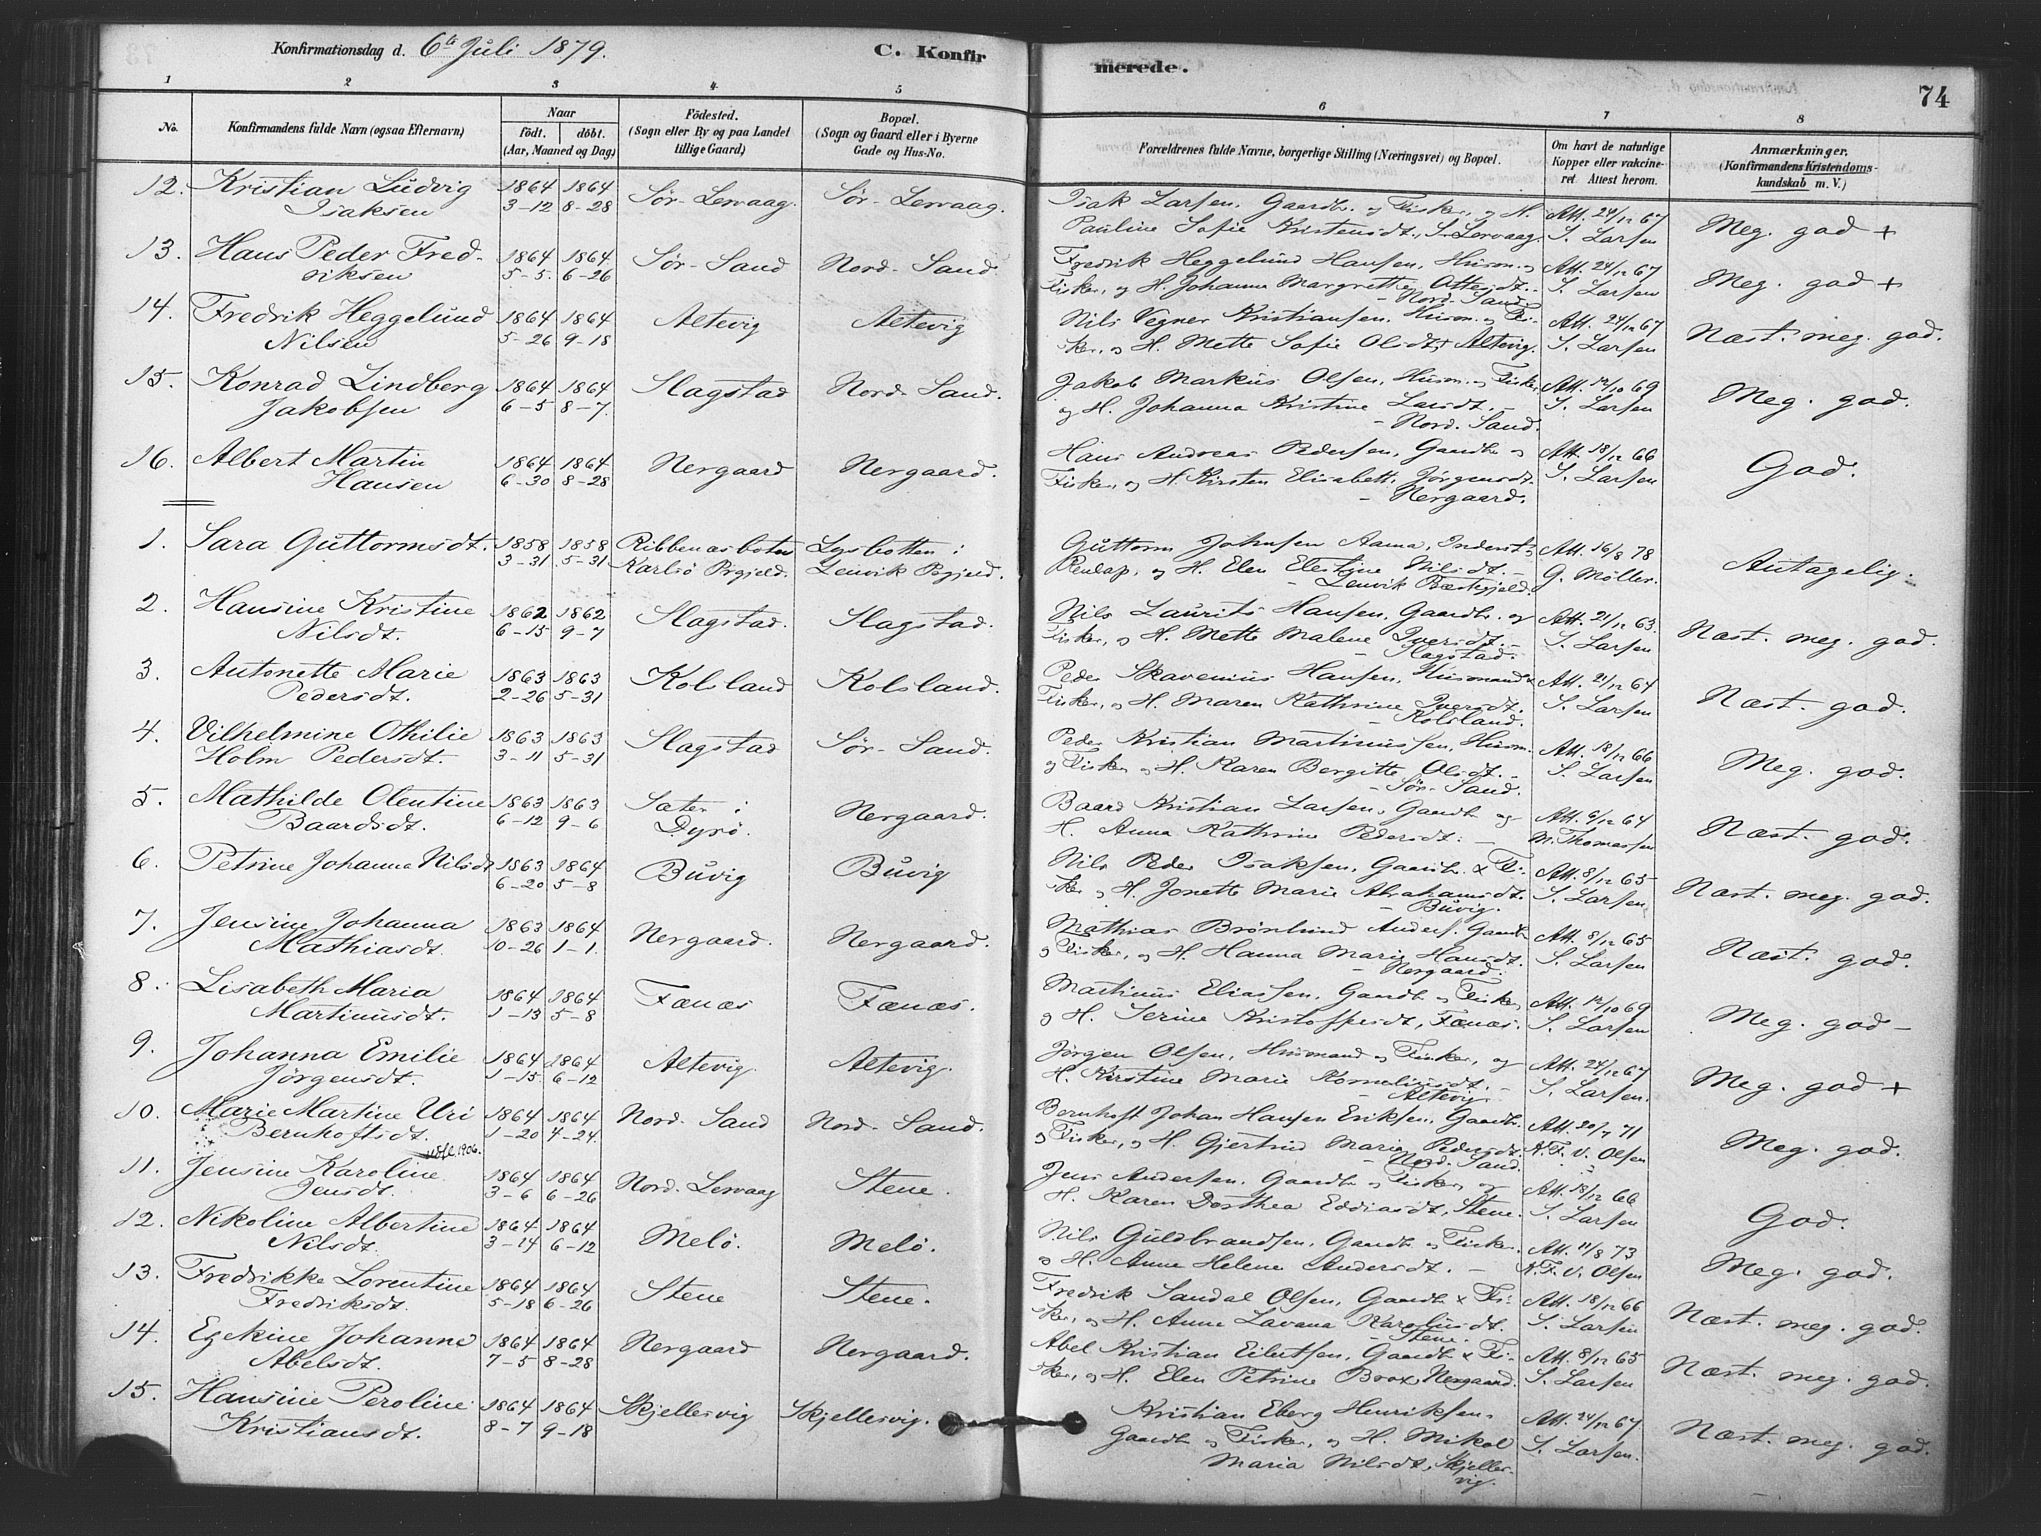 Konfirmationsdag d. 6te Juli 1879.
C. Konfirmerede.
74
1 2 3 4 5 6 7 8
No.
Konfirmandens fulde Navn (ogsaa Efternavn)
Naar
født. døbt.
(Aar, Maaned og Dag)
Fødested.
(Sogn eller By og paa Landet
tillige Gaard)
Bopæl.
(Sogn og Gaard eller i Byerne
Gade og Hus-No.
Forældrenes fulde Navne, borgerlige Stilling (Næringsvei) og Bopæl.
Om havt de naturlige
Kopper eller vakcine-
ret Attest herom.
Anmærkninger.
(Konfirmandens Kristendoms-
kundskab m. V.)
12. Kristian Ludvig 1864 1864 Sør-Lervaag. Sør-Lervaag. Isak Larsen, Gaardbr. og Fisker, og H. Att. 24/12 67 Meg. god +
Isaksen 3-12 8-28 Pauline Sofie Kristensdt., S. Lervaag. S. Larsen
13. Hans Peder Fred- 1864 1864 Sør-Sand Nord-Sand. Fredrik Heggelund Hansen, Husm. og Att. 24/12 67 Meg. god +
riksen 5-5. 6-26 Fisker, og H. Johanna Margrethe Ottesdt. S. Larsen
- Nord-Sand
14. Fredrik Heggelund 1864 1864 Altevig Altevig Nils Vegner Kristiansen, Husm. og Fi- Att. 24/12 67 Næst. meg. god.
Nilsen 5-26 9-18 sker, og H. Mette Sofie Olsdt., Altevig. S. Larsen
15. Konrad Lindberg 1864 1864 Slagstad Nord-Sand. Jakob Markus Olsen, Husm. og Fisker Att. 12/10 69 Meg. god.
Jakobsen 6-5 8-7 og H. Johanna Kristine Larsdt. - S. Larsen
- Nord-Sand.
16. Albert Martin 1864 1864 Nergaard Nergaard. Hans Andreas Pedersen, Gaardbr. og Att. 18/12 66 God.
Hansen 6-30 8-28 Fisker, og H. Kirsten Elisabeth Jørgensdt. S. Larsen
- Nergaard.
1. Sara Guttormsdt. 1858 1858 Ribbenæsboten Lysbotten i Guttorm Johnsen Aama, Att. 16/8 78 Antagelig.
3-31 5-31 Karlsö Prgjeld. Lenvik Prgjeld. Renlap, og H. Elen Nilsdt. - G. Møller.
- Lenvik Præstegjeld.
2. Hansine Kristine 1862 1862 Slagstad. Slagstad. Nils Laurits Hansen, Gaardbr. og Att. 21/12 63. Næst. meg. god
Nilsdt. 6-15 9-7 Fisker, og H. Mette Malene Iversdt. - S. Larsen
- Slagstad.
3. Antonette Marie 1863 1863 Kolsland Kolsland. Peder Skavenius Hansen, Husmand & Att. 21/12 64 Næst. god.
Pedersdt. 2-26 5-31 Fisker, og H. Maren Kathrine Iversdt. S. Larsen
- Kolsland.
4. Vilhelmine Othilie 1863 1863 Slagstad Sør-Sand. Peder Kristian Martinussen, Husm. Att. 18/12 66 Meg. god.
Holm Pedersdt. 3-11 5-31 og Fisker og H. Karen Bergitte Olsdt. - S. Larsen
- Sør-Sand.
5. Mathilde Olentine 1863 1863 Sæter i Nergaard. Baard Kristian Larsen, Gaardbr. og Att. 9/12 64 Næst. god.
Baardsdt. 6-12 9-6 Dyrø. H. Anna Kathrine Pedersdt. - M. Thomassen
6. Petrine Johanna Nilsdt 1863 1864 Buvig Buvig Nils Peder Isaksen, Gaardbr. & Fi- Att. 8/12 65 Næst. meg. god.
6-20 5-8 sker, og H. Jonette Marie Abrahamsdt. S. Larsen
- Buvig.
7. Jensine Johanna 1863 1864 Nergaard. Nergaard. Mathias Brønlund Anders. Gaardbr. Att. 8/12 65 Næst. god.
Mathiasdt. 10-26 1-1. og Fisker, og H. Hanna Marie Hansdt. S. Larsen
- Nergaard.
8. Lisabeth Maria 1864 1864 Fænæs Fænæs. Martinus Eliassen, Gaardbr. og Fisker Att. 12/10 69 Meg. god -
Martinusdt. 1-13 5-8 og H. Serine Kristoffersdt., Fænæs. S. Larsen
9. Johanna Emilie 1864 1864 Altevig. Altevig. Jørgen Olsen, Husmand og Fisker, og Att. 24/12 67 Meg. god +
Jørgensdt. 1-15 6-12 H. Kirstine Marie Korneliusdt. - S. Larsen.
- Altevig.
10. Marie Martine Uri 1864 1864 Nord-Sand Nord-Sand. Bernhoft Johan Hansen Eriksen, Gaardbr. Att. 20/7 71 Meg. god.
Bernhoftsdt. 1-20 4-24 og Fisker, og H. Gjertrud Marie Pedersdt. N. F. V. Olsen
1906. - Nord-Sand.
11. Jensine Karoline 1864 1864 Nord-Lervaag Stene. Jens Andersen, Gaardbr. og Fisker, og Att. 18/12 66 God.
Jensdt. 3-6 6-26 H. Karen Dorthea Eddiasdt., Stene. S. Larsen
12. Nikoline Albertine 1864 1864 Melö. Melö. Nils Guldbrandsen, Gaardbr. og Fisker. Att. 11/8 73 Meg. god.
Nilsdt. 3-14 6-12 og H. Anne Helene Andersdt. - N. F. V. Olsen
13. Fredrikke Lorentine 1864 1864 Stene Stene. Fredrik Sandal Olsen, Gaardbr. & Fi- Att. 18/12 66 Næst. meg. god.
Fredriksdt. 5-18 6-26 sker, og H. Anne Lavana Karolusdt. S. Larsen
- Stene.
14. Ezekine Johanne 1864 1864 Nergaard Nergaard. Abel Kristian Eilertsen, Gaardbr. & Fi- Att. 8/12 65 Næst. meg. god.
Abelsdt. 7-5 8-28 sker, og H. Elen Petrine Brox, Nergaard. S. Larsen
15. Hansine Peroline 1864 1864 Skjellesvig Skjellesvig. Kristian Eberg Henriksen, Att. 24/12 67. Næst. meg. god.
Kristiansdt. 8-7 9-18 Gaardbr. og Fisker, og H. Mikal S. Larsen.
Maria Nilsdt., Skjelles-
vig.